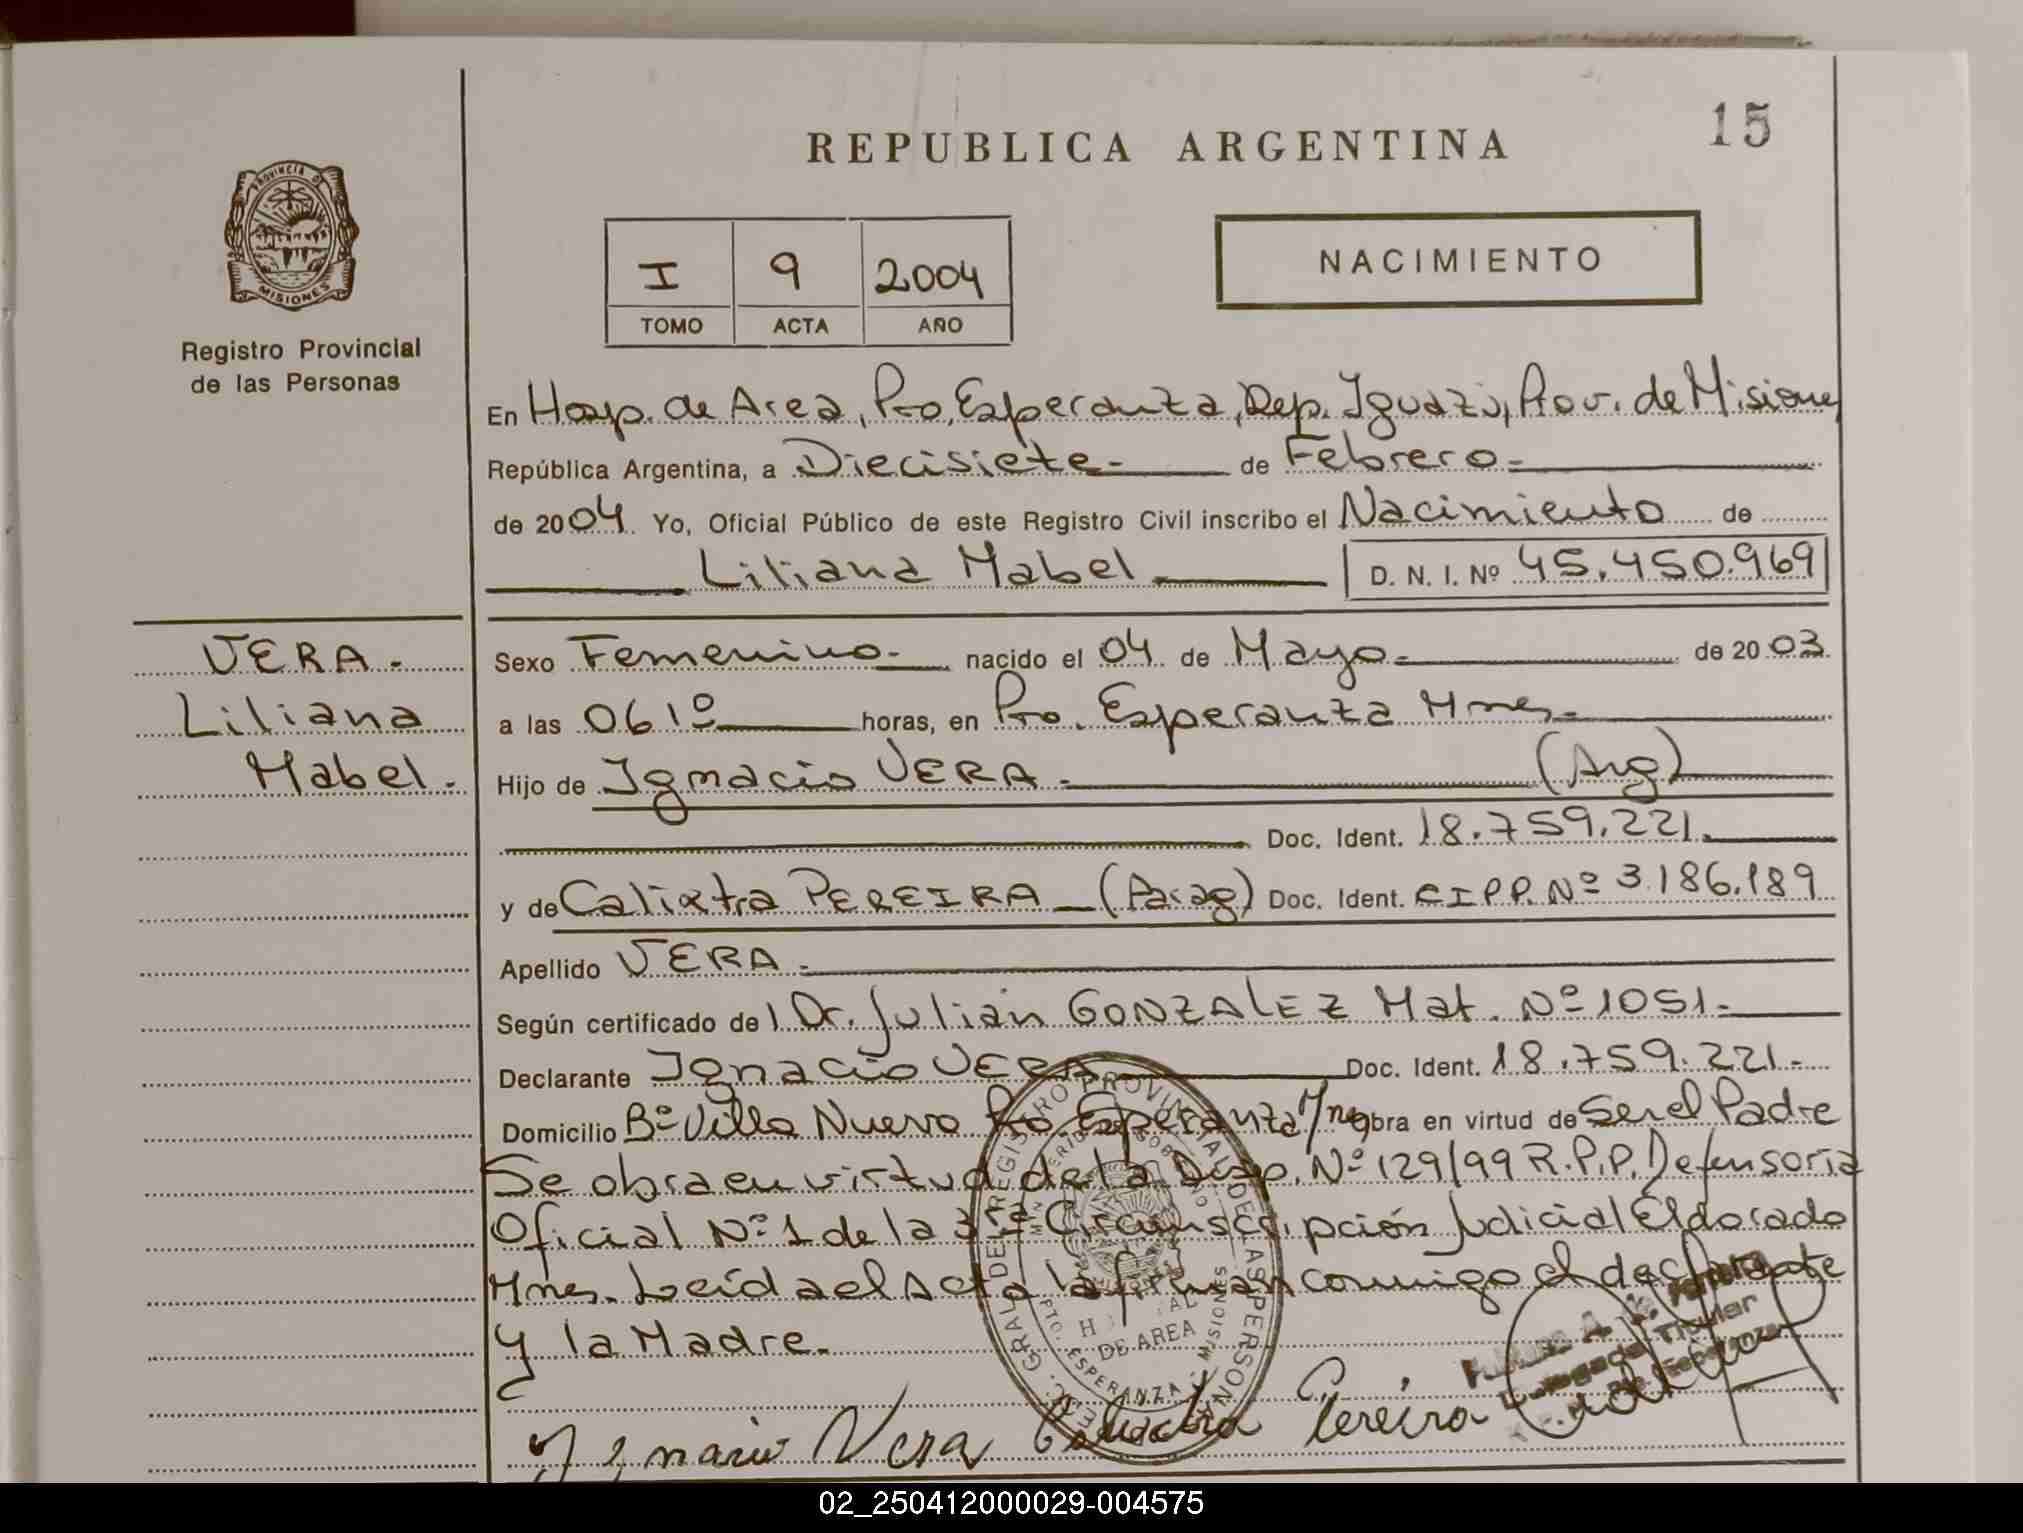 15
REPUBLICA ARGENTINA
PROVINCIA DE
MISIONES
Registro Provincial
de las Personas
I 9 2004
TOMO ACTA AÑO
NACIMIENTO
En Hosp. de Area, Pto. Esperanza, Dep. Iguazú, Prov. de Misiones
República Argentina, a Diecisiete.- de Febrero.-
de 2004. Yo, Oficial Público de este Registro Civil inscribo el Nacimiento de
Liliana Mabel.- D. N. I. Nº 45.450.969
VERA.-
Liliana
Mabel.-
Sexo Femenino.- nacido el 04 de Mayo.- de 2003.
a las 06 10 horas, en Pto. Esperanza Mnes.-
Hijo de Ignacio VERA.- (Arg)
Doc. Ident. 18.759.221.-
y de Calixtra PEREIRA (Parag) Doc. Ident. CIPP. Nº 3.186.189
Apellido VERA.-
Según certificado del Dr. Julián GONZALEZ Mat. Nº 1051.-
Declarante Ignacio VERA Doc. Ident. 18.759.221.-
Domicilio Bº Villa Nueva Pto. Esperanza Mnes obra en virtud de Ser el Padre
Se obra en virtud de la Disp. Nº 129/99 R.P.P. Defensoría
Oficial Nº 1 de la 3ra Circunscripción Judicial Eldorado
Mnes. Leída el Acta la firman conmigo el declarante
y la Madre.-
Ignacio Vera Pereira
REGISTRO PROVINCIAL DE LAS PERSONAS
DE AREA
PTO. ESPERANZA - MISIONES
Titular
02_250412000029-004575